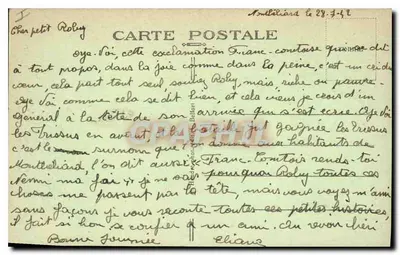 I
Montbéliard le 28-7-42
Cher petit Roby
CARTE POSTALE
Oye-Voï, cette exclamation Franc-comtoise qui se dit
à tout propos, dans la joie comme dans la peine, c'est un cri du
cœur, cela part tout seul, Roby, mais, riche ou pauvre
Oye Voï comme cela se dit bien, et cela viens je crois d'un
général à la tête de son qui s'est écrié Aye Voï
les Tressus en avant la bataille est gagnée les Tressus
c'est le surnom que donne aux habitants de
Montbéliard l'on dit aussi Franc. Comtois rends-toi
Nenni ma je ne sais pourquoi Roby toutes ces
choses me passent par la tête, mais vous voyez m'ami
sans façons je vous raconte toutes ces petites histoires,
il fait si bon se confier à un ami. Au revoir chéri
Bonne journée Eliane